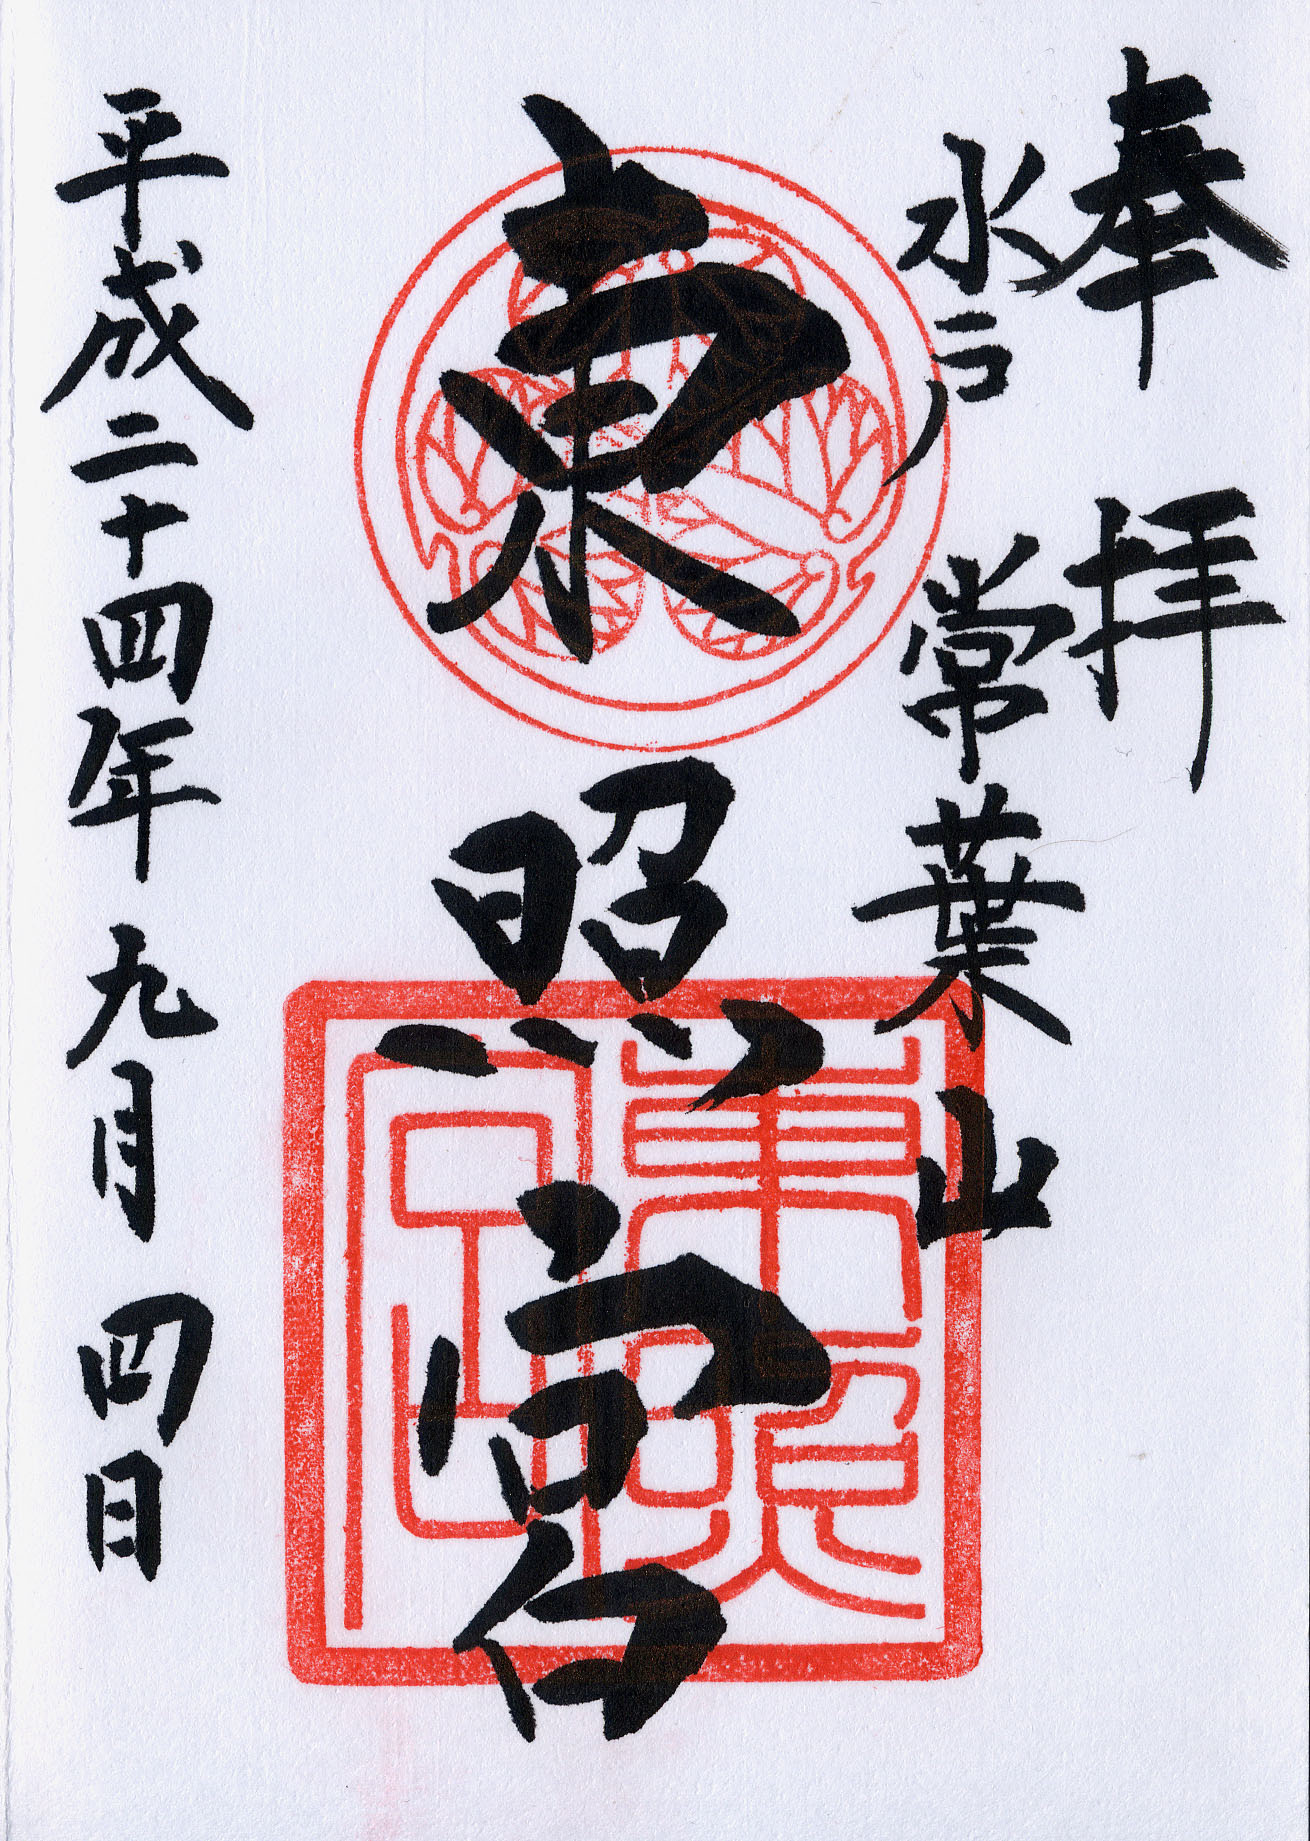 奉拝
水戸常葉山
東照宮
東照宮
平成二十四年九月四日